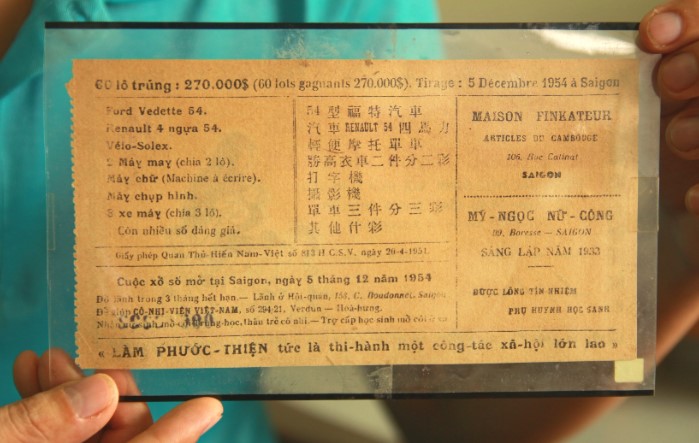 60 lô trúng : 270.000$ (60 lots gagnants 270.000$). Tirage : 5 Décembre 1954 à Saigon
Ford Vedette 54.
Renault 4 ngựa 54.
Vélo-Solex.
2 Máy may (chia 2 lô).
Máy chữ (Machine à écrire).
Máy chụp hình.
3 xe máy (chia 3 lô).
Còn nhiều số đáng giá.
54 型福特汽車
汽車 RENAULT 54 四馬力
輕便摩托單車
勝高衣車二件分二彩
打字機
攝影機
單車三件分三彩
其他什彩
Giấy phép Quan Thủ-Hiến Nam-Việt số H C.S.V. ngày 20-4-1951.
Cuộc xổ số mở tại Saigon, ngày 5 tháng 12 năm 1954
Đồ lãnh trong 3 tháng hết hạn.— Lãnh ở Hội-quán, C. Saigon
Để giúp CÔ-NHI-VIỆN VIỆT-NAM, số Verdun — Hoà-hưng.
Trợ cấp học sinh mồ côi
MAISON FINKATEUR
ARTICLES DU CAMBODGE
106, Rue Catinat
SAIGON
MỸ-NGỌC NỮ-CÔNG
Baresse — SAIGON
SÁNG LẬP NĂM 1933
ĐƯỢC LÒNG TÍN NHIỆM
PHỤ HUYNH HỌC SANH
« LÀM PHƯỚC-THIỆN tức là thi-hành một công-tác xã-hội lớn lao »